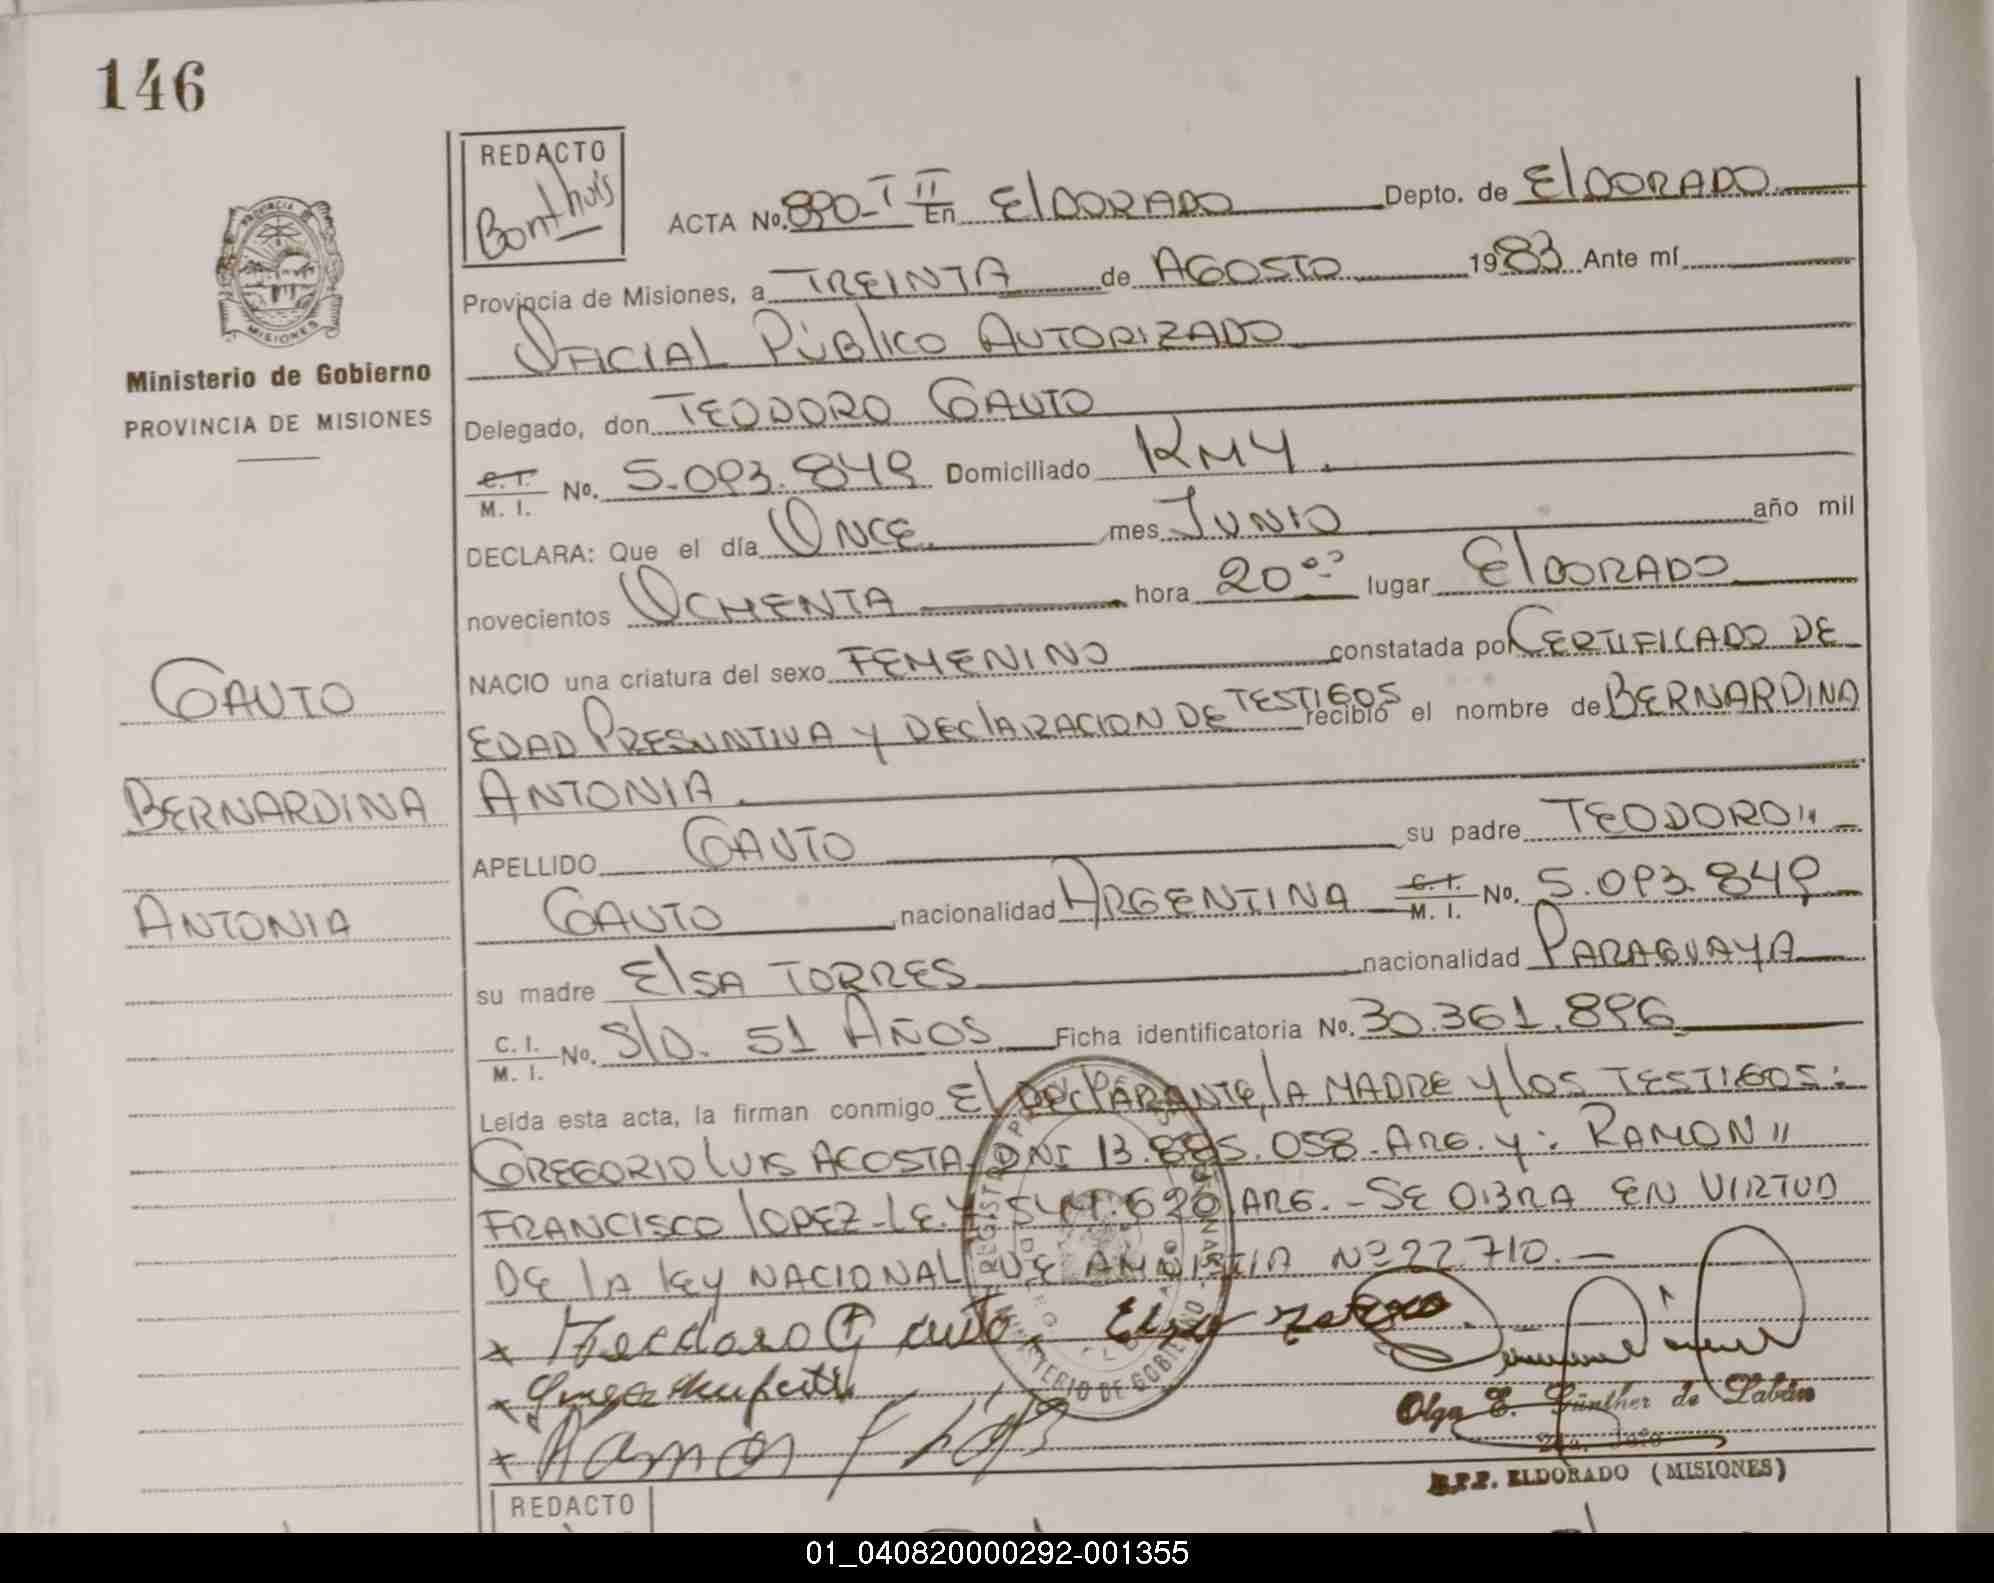 146
REDACTO
Bonthuis
ACTA No. 890-T II En ElDORADO Depto. de ElDORADO
Provincia de Misiones, a TREINTA de AGOSTO 1983 Ante mí
OFICIAL PÚBlICO AUTORIZADO
Ministerio de Gobierno
PROVINCIA DE MISIONES
Delegado, don TEODORO GAUTO
C.I. M. I. No. 5.093.849 Domiciliado KM4.
DECLARA: Que el día ONCE mes JUNIO año mil
novecientos OCHENTA hora 20 oo lugar ElDORADO
NACIO una criatura del sexo FEMENINO constatada por CERTIFICADO DE
EDAD PRESUNTIVA Y DEClARACION DE TESTIGOS recibió el nombre de BERNARDINA
ANTONIA.
GAUTO
BERNARDINA
ANTONIA
APELLIDO GAUTO su padre TEODORO "
GAUTO nacionalidad ARGENTINA C.I. M. I. No. 5.093.849
su madre ElSA TORRES nacionalidad PARAGUAYA
C. I. M. I. No. S/D. 51 AÑOS Ficha identificatoria No. 30.361.896
Leída esta acta, la firman conmigo El DEClARANTE, lA MADRE Y lOS TESTIGOS:
GREGORIO lUIS ACOSTA DNI 13.885.058-ARG. Y: RAMON "
FRANCISCO lOPEZ-LE. ARG. - SE OBRA EN VIRTUD
DE lA lEY NACIONAL DE AMNISTIA Nº 22.710.-
x Teodoro Gauto. Elsa
x Ramón F López
MINISTERIO DE GOBIERNO
Olga E. Günther de Labán
2da. Jefe
R.P.P. ELDORADO (MISIONES)
REDACTO
01_040820000292-001355